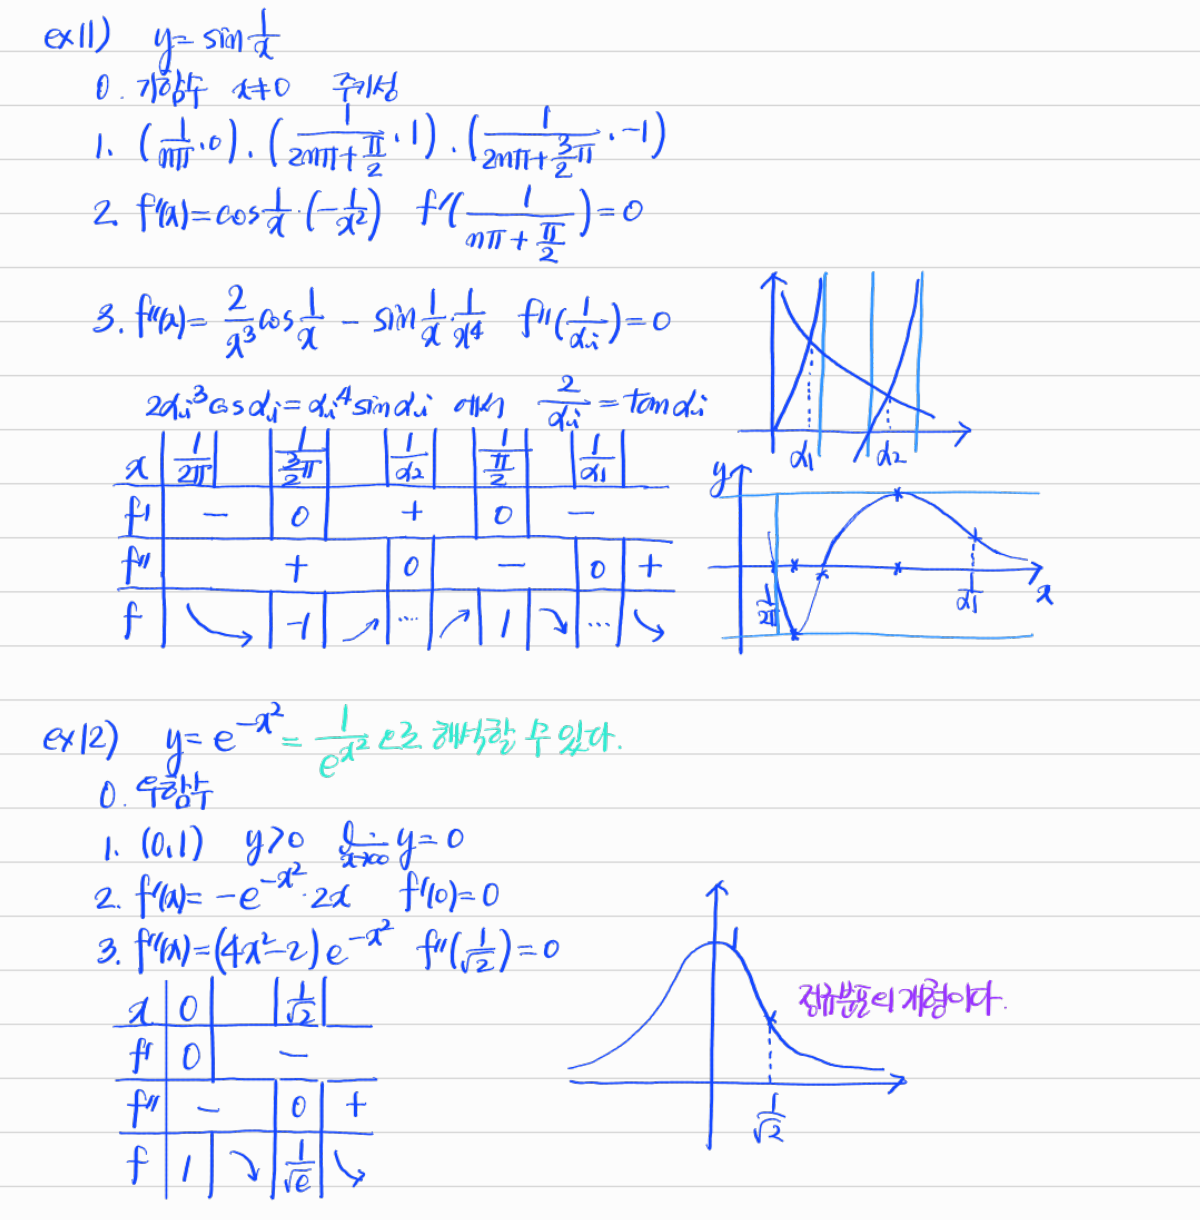 ex11) y = sin 1/x
0. 기함수 x≠0 주기성
1. (1/nπ, 0), (1/(2nπ+π/2), 1), (1/(2nπ+3/2π), -1)
2. f'(x) = cos 1/x · (-1/x²) f'(1/(nπ+π/2)) = 0
3. f''(x) = 2/x³ cos 1/x - sin 1/x · 1/x⁴ f''(1/αi) = 0
2αi³ cos αi = αi⁴ sin αi 에서 2/αi = tan αi
α1 α2
x 1/2π 1/(3/2π) 1/α2 1/(π/2) 1/α1
f' - 0 + 0 -
f'' + 0 - 0 +
f -1 ... 1 ...
y
1/2π 1/α1 x
ex12) y = e^(-x²) = 1/e^(x²) 으로 해석할 수 있다.
0. 우함수
1. (0,1) y>0 lim x→∞ y = 0
2. f'(x) = -e^(-x²) · 2x f'(0) = 0
3. f''(x) = (4x²-2)e^(-x²) f''(1/√2) = 0
x 0 1/√2
f' 0 -
f'' - 0 +
f 1 1/√e
1
정규분포의 개형이다.
1/√2